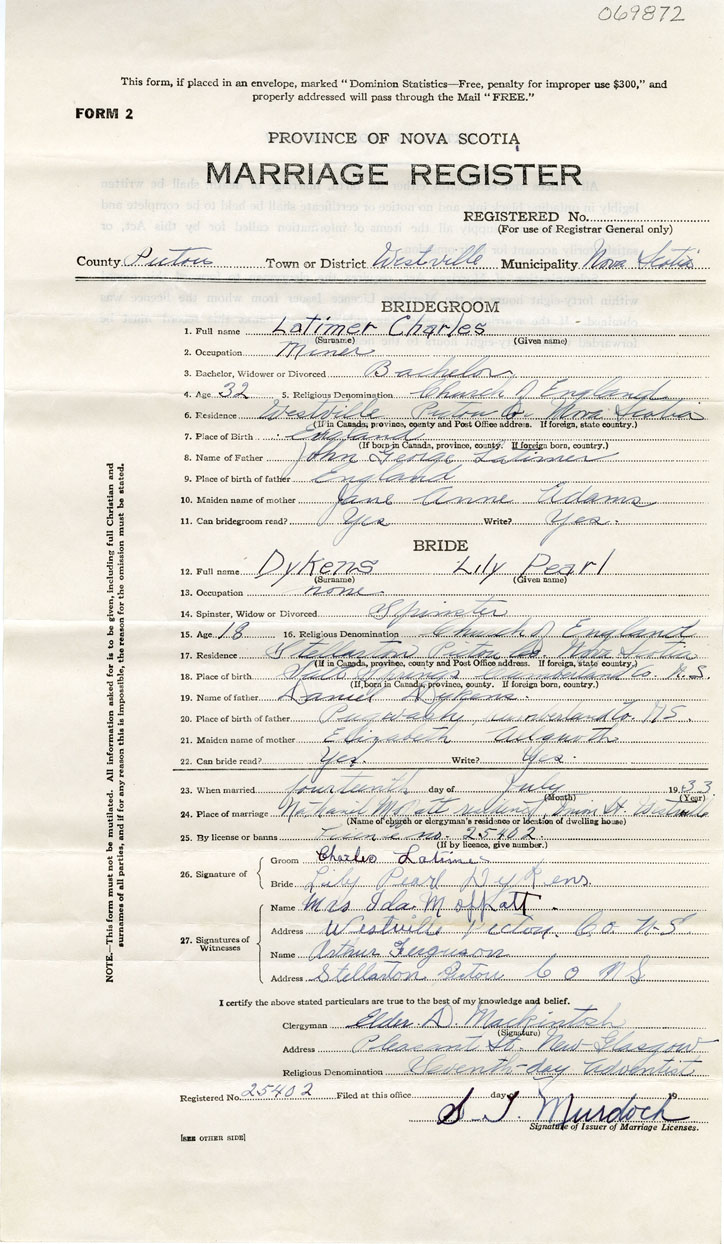 069872
This form, if placed in an envelope, marked "Dominion Statistics—Free, penalty for improper use $300," and
properly addressed will pass through the Mail "FREE."
FORM 2
PROVINCE OF NOVA SCOTIA
MARRIAGE REGISTER
REGISTERED No.
(For use of Registrar General only)
County Pictou Town or District Westville Municipality Nova Scotia
BRIDEGROOM
1. Full name Latimer Charles
(Surname) (Given name)
2. Occupation Miner
3. Bachelor, Widower or Divorced Bachelor
4. Age 32 5. Religious Denomination Church of England
6. Residence Westville Pictou Co Nova Scotia
(If in Canada, province, county and Post Office address. If foreign, state country.)
7. Place of Birth England
(If born in Canada, province, county. If foreign born, country.)
8. Name of Father John George Latimer
9. Place of birth of father England
10. Maiden name of mother Jane Anne Adams
11. Can bridegroom read? Yes Write? Yes.
BRIDE
12. Full name Dykens Lily Pearl
(Surname) (Given name)
13. Occupation none.
14. Spinster, Widow or Divorced Spinster
15. Age 18 16. Religious Denomination Church of England
17. Residence Stellarton Pictou Co. Nova Scotia
(If in Canada, province, county and Post Office address. If foreign, state country.)
18. Place of birth Salt Springs Cumberland Co. N.S.
(If born in Canada, province, county. If foreign born, country.)
19. Name of father Daniel Dykens.
20. Place of birth of father Pugwash Cumberland Co. NS.
21. Maiden name of mother Elizabeth
22. Can bride read? Yes. Write? Yes.
23. When married fourteenth day of July 1933
(Month) (Year)
24. Place of marriage Moffatt Main St. Westville
(Name of church or clergyman's residence or location of dwelling house)
25. By license or banns no. 25402
(If by licence, give number.)
26. Signature of
Groom Charles Latimer
Bride Lily Pearl Dykens.
27. Signatures of Witnesses
Name Mrs Ida Moffatt.
Address Westville Pictou Co N-S
Name Arthur Ferguson
Address Stellarton Pictou Co NS
I certify the above stated particulars are true to the best of my knowledge and belief.
Clergyman Elder D. Mackintosh
(Signature)
Address Pleasant St. New Glasgow
Religious Denomination Seventh-day Adventist
Registered No. 25402 Filed at this office day 19
S. J. Murdoch
Signature of Issuer of Marriage Licenses.
[SEE OTHER SIDE]
NOTE.—This form must not be mutilated. All information asked for is to be given, including full Christian and
surnames of all parties, and if for any reason this is impossible, the reason for the omission must be stated.